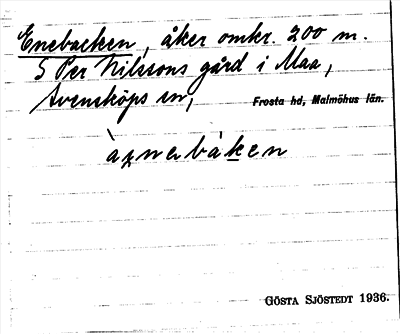 Enebacken, åker omkr. 200 m.
S Per Nilssons gård i Maa,
Svensköps sn,
Frosta hd, Malmöhus län.
bàken
GÖSTA SJÖSTEDT 1936.